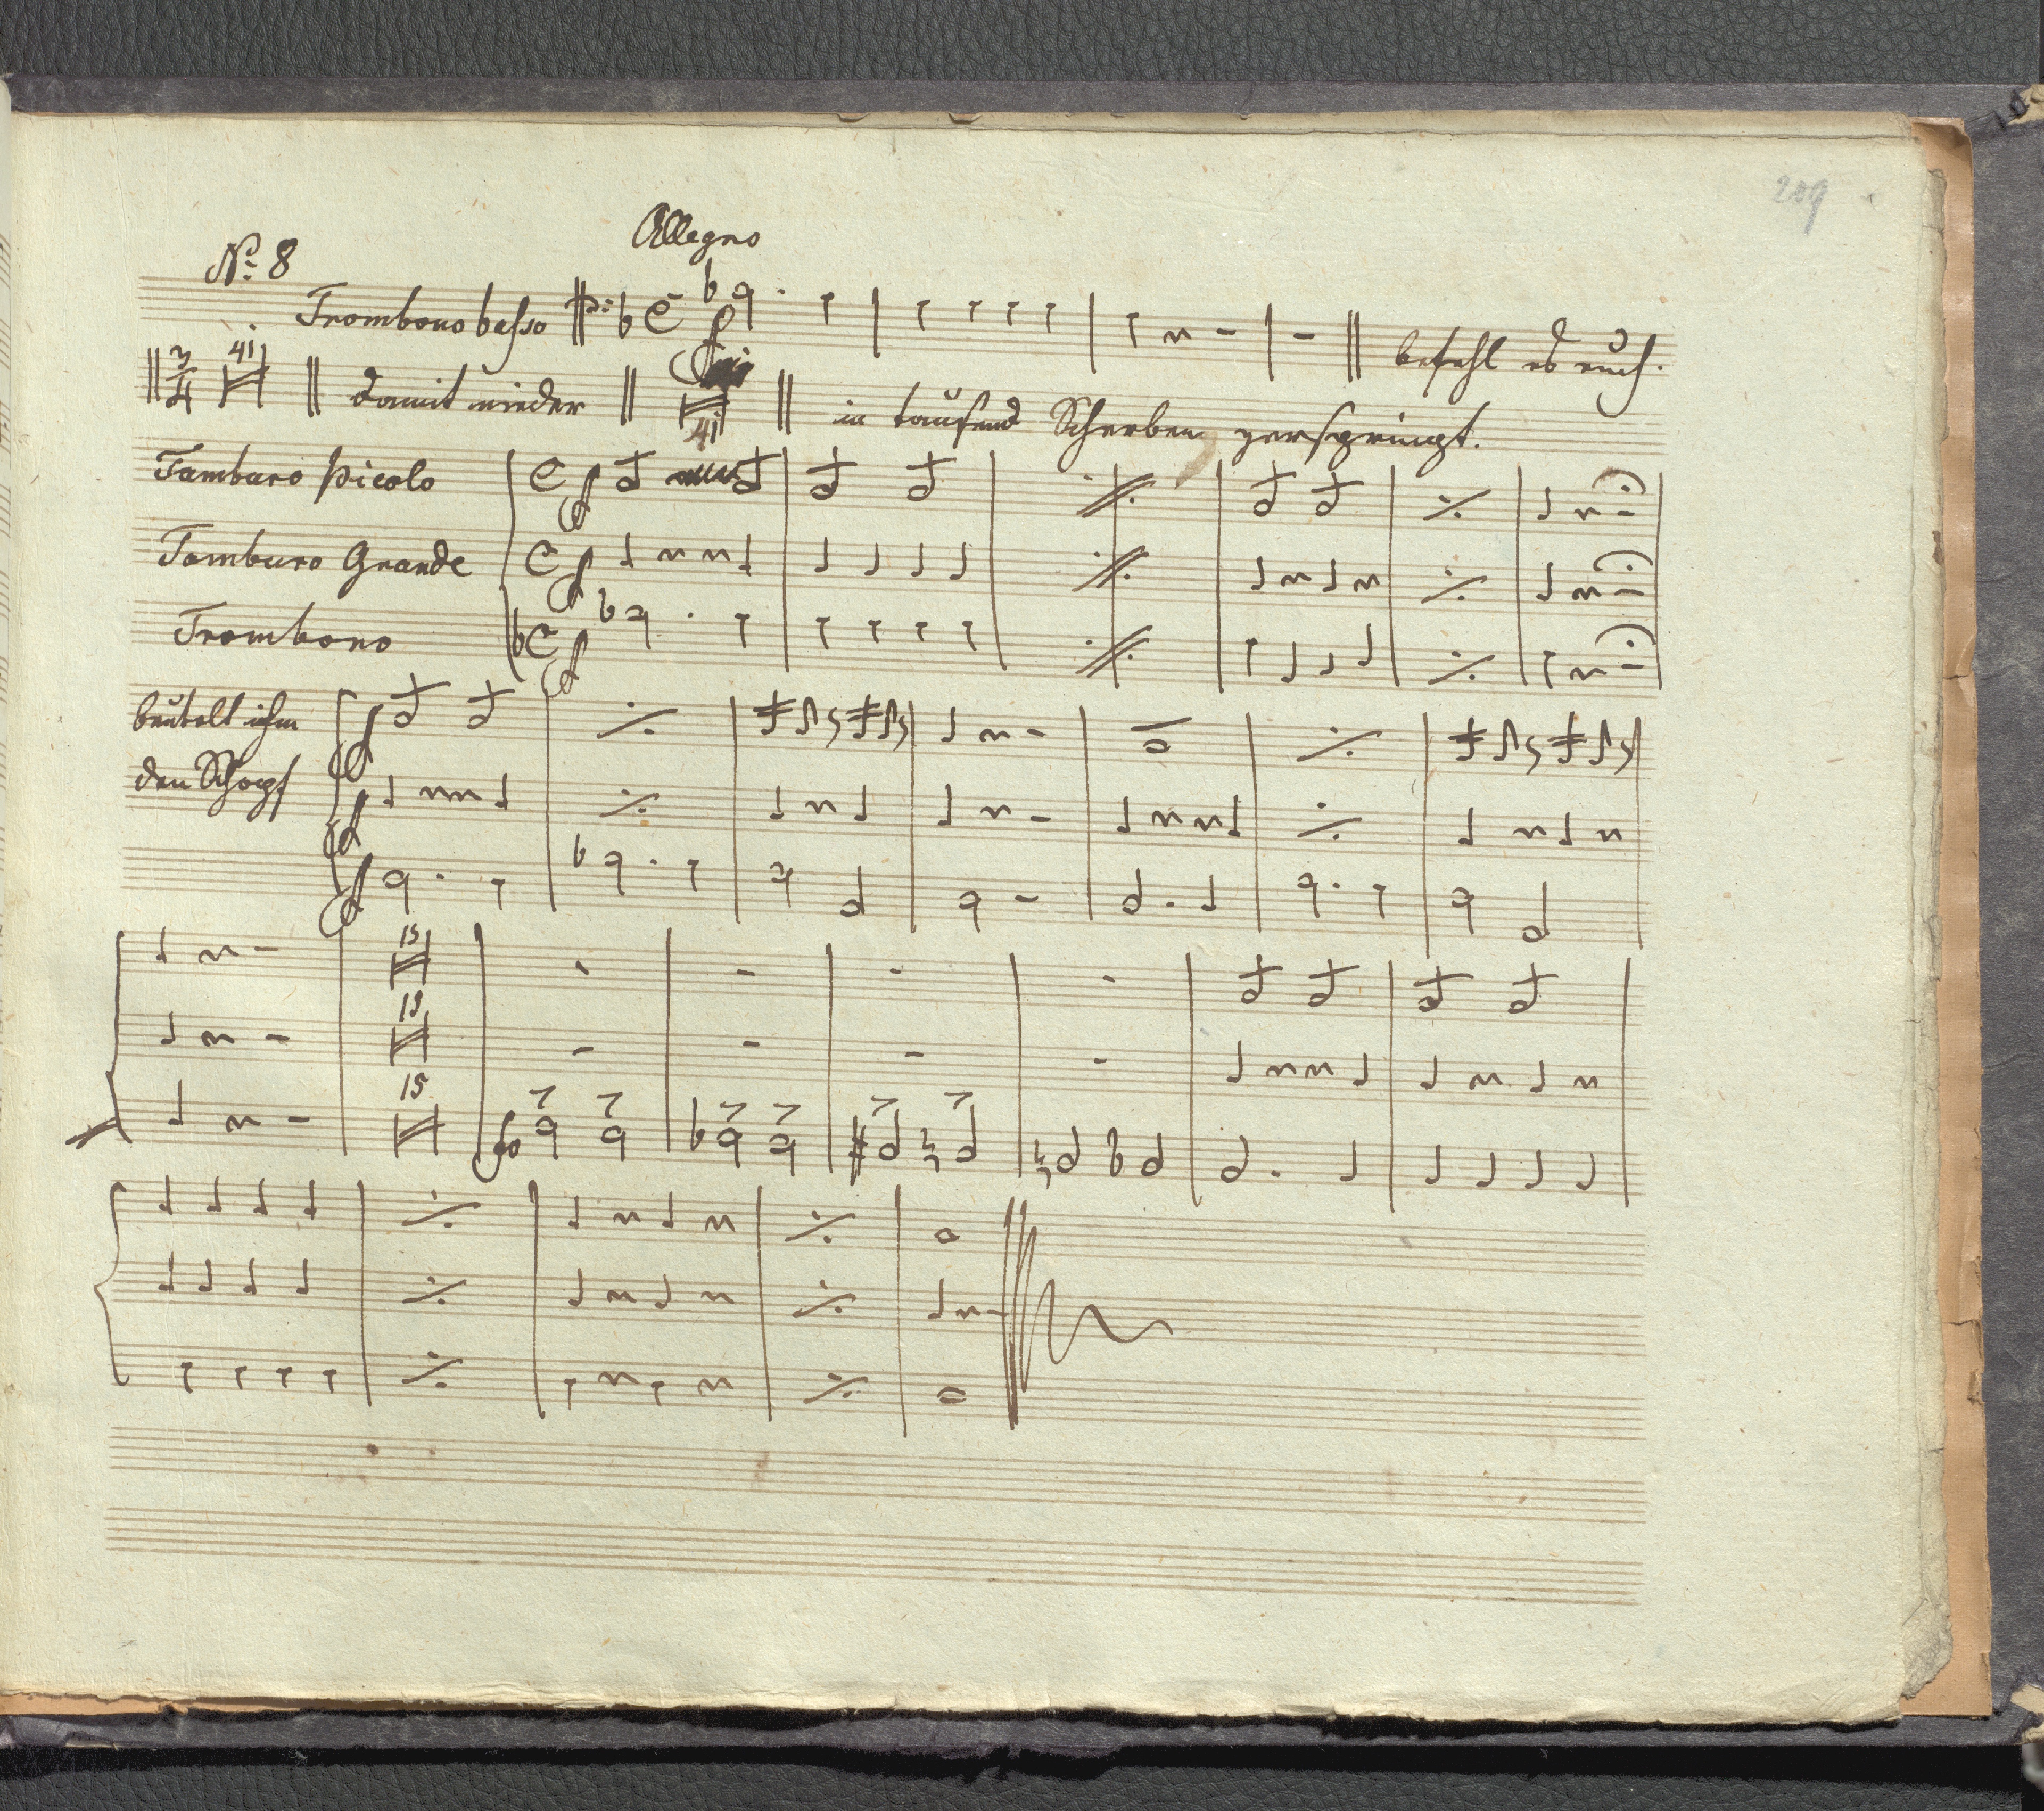 209
Allegro
No. 8
Trombono basso
befehl es euch.
3/4 41 damit nieder 41 in tausend Scherben zerspringt.
Tamburo picolo
Tamburo Grande
Trombono
beutelt ihm
den Schopf
15
15
15
fo